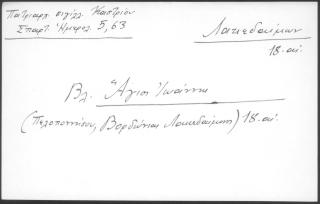 Πατριαρχ. σιγίλλ.
Σπαρτ. Ἡμερολ. 5, 63
Λακεδαίμων
18. αἰ.
Βλ. Ἅγιοι Ἰωάννη
(Πελοποννήσου, Βορδώνια Λακεδαίμον) 18. αἰ.